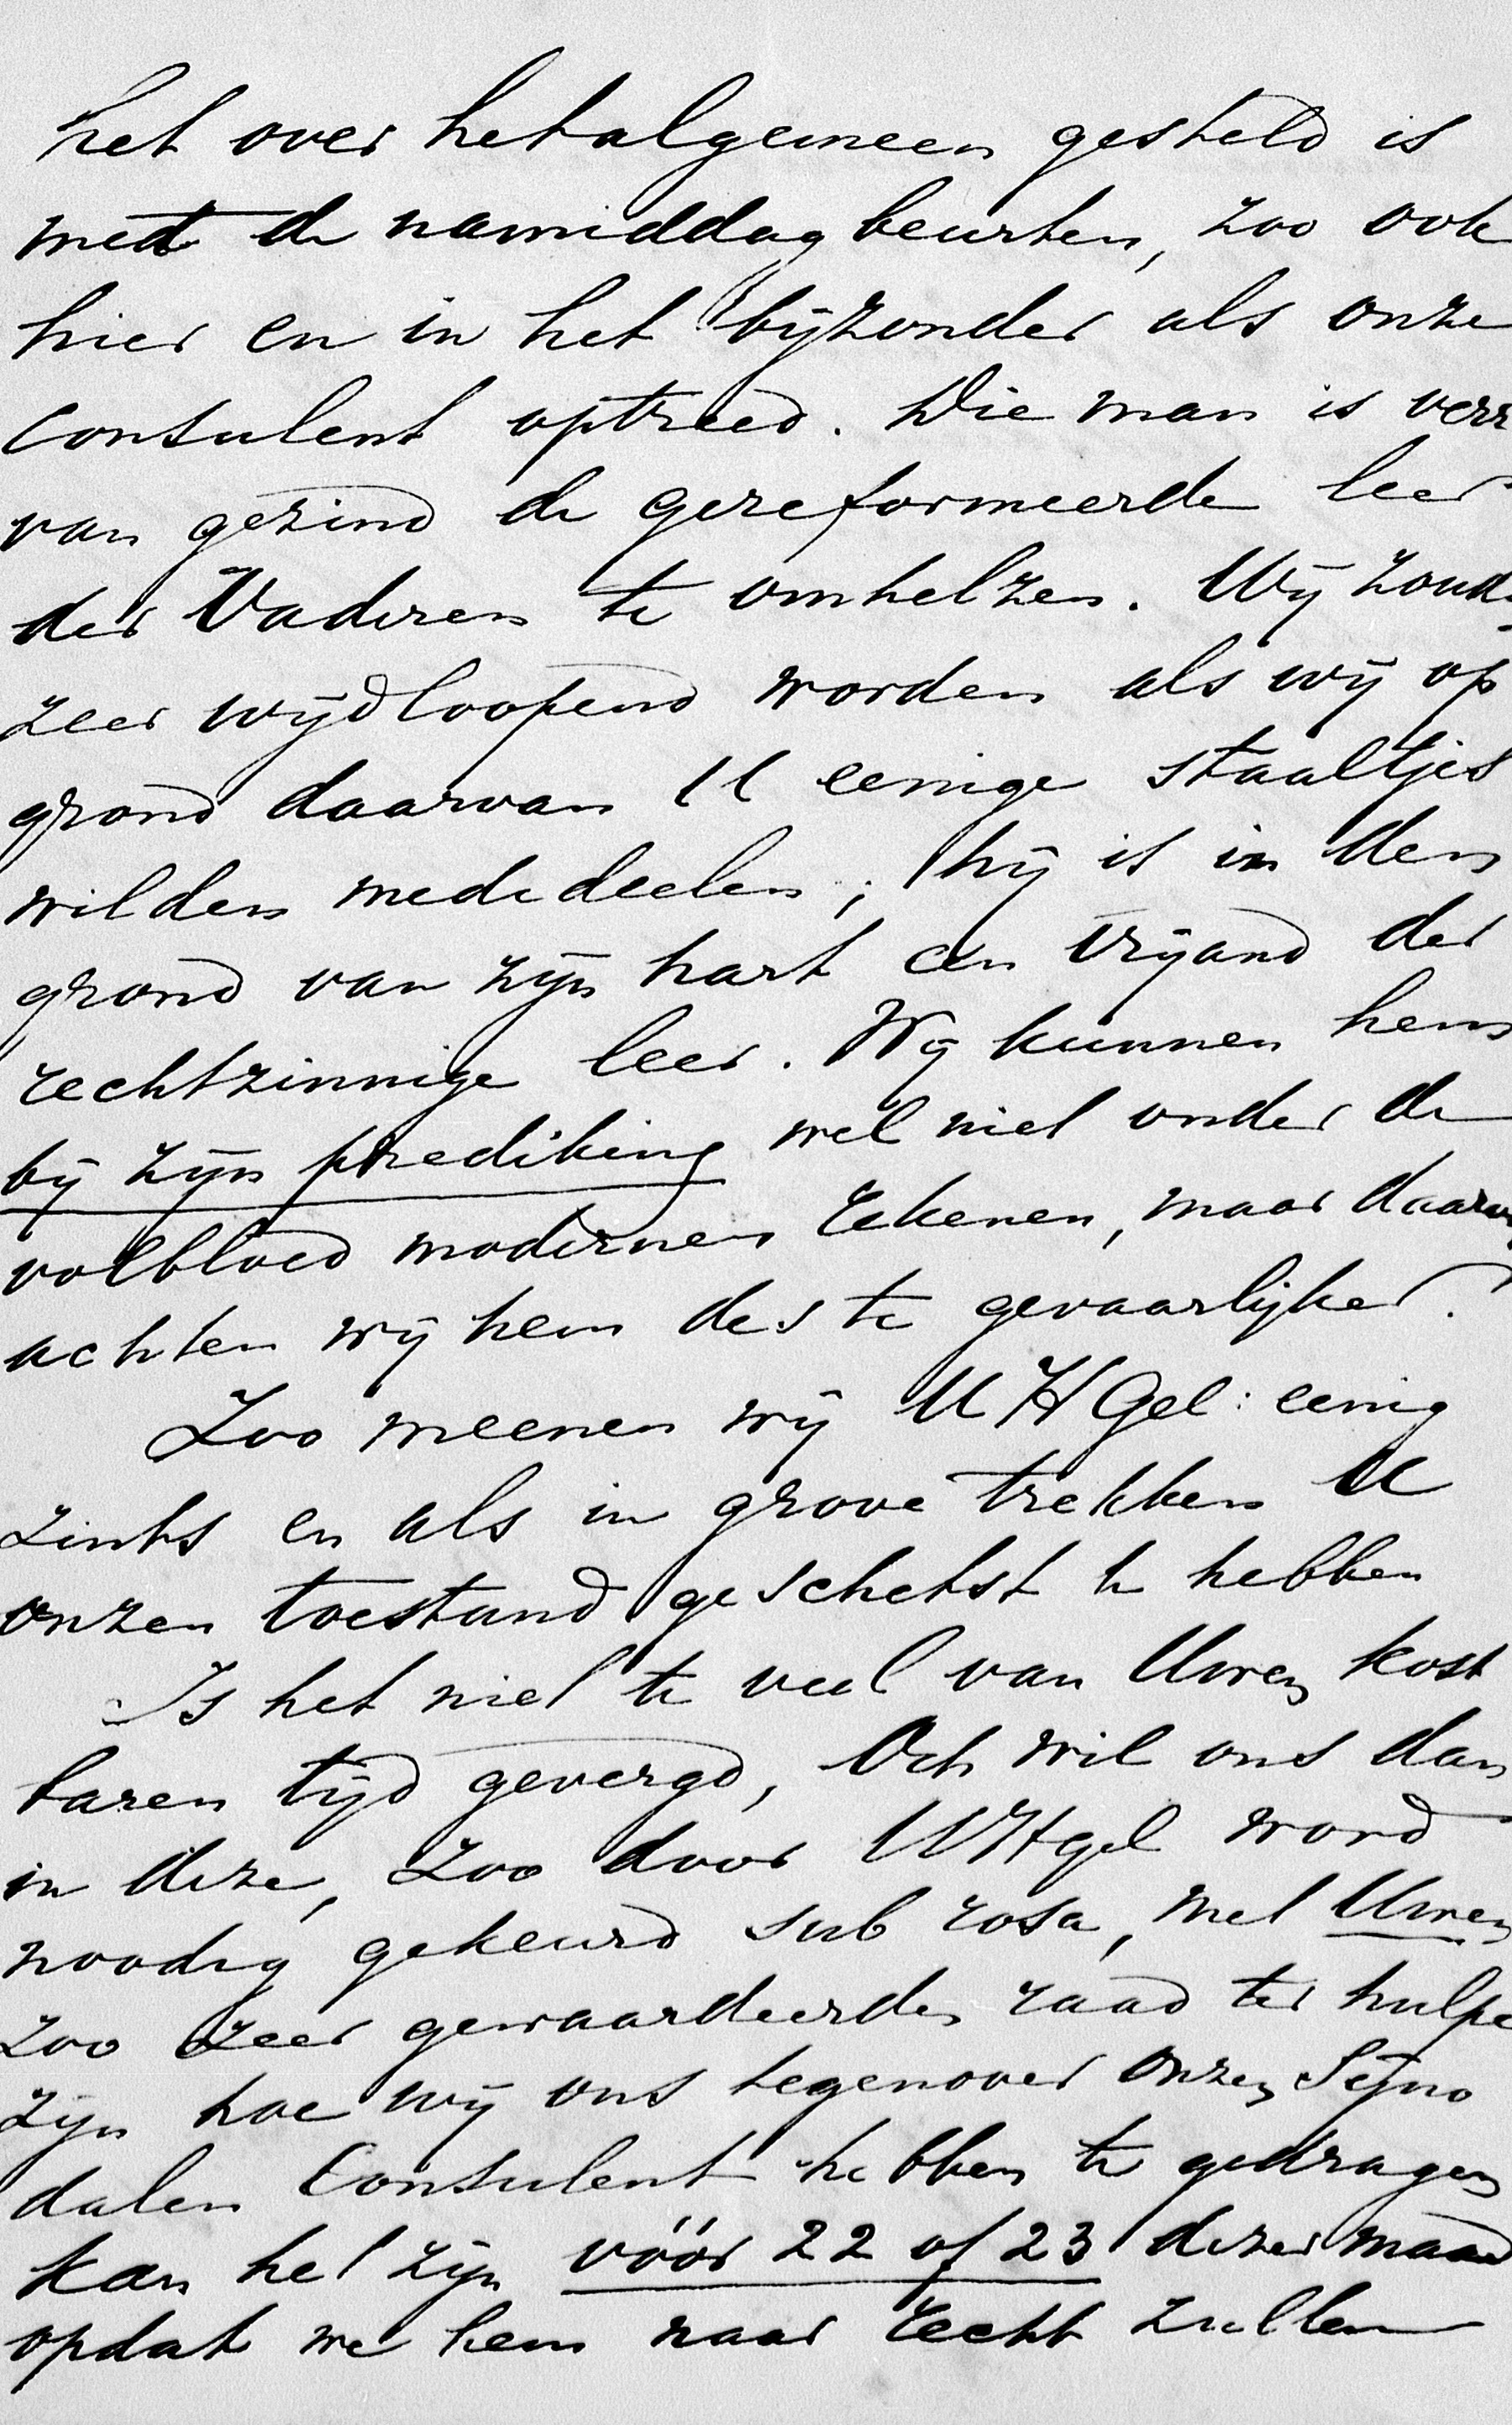 het over het algemeen gesteld is
met de namiddag beurten, zoo ook
hier en in het bijzonder als onze
Consulent optreed. Die man is verr
van gezind de gereformeerde leer
der Vaderen te omhelzen. Wij zoud
zeer wijdloopend worden als wij op
grond daarvan U eenige staaltjes
wilden mededeelen; hij is in den
grond van zijn hart een vijand der
rechtzinnige leer. Wij kunnen hem
bij zijn prediking wel niet onder de
volbloed modernen rekenen, maar daarom
achten wij hem des te gevaarlijker.
Zoo meenen wij UHGel: eenig
zints en als in grove trekken U
onzen toestand geschetst te hebben
Is het niet te veel van Uwen kost
baren tijd gevergd, Och wil ons dan
in deze, zoo door UHgel word
noodig gekeurd sub rosa, met Uwen
zoo zeer gewaardeerden raad ter hulpe
zijn hoe wij ons tegenover onzen Syno
dalen Consulent hebben te gedragen
kan het zijn vóór 22 of 23 dezer maand
opdat we hem naar recht zullen